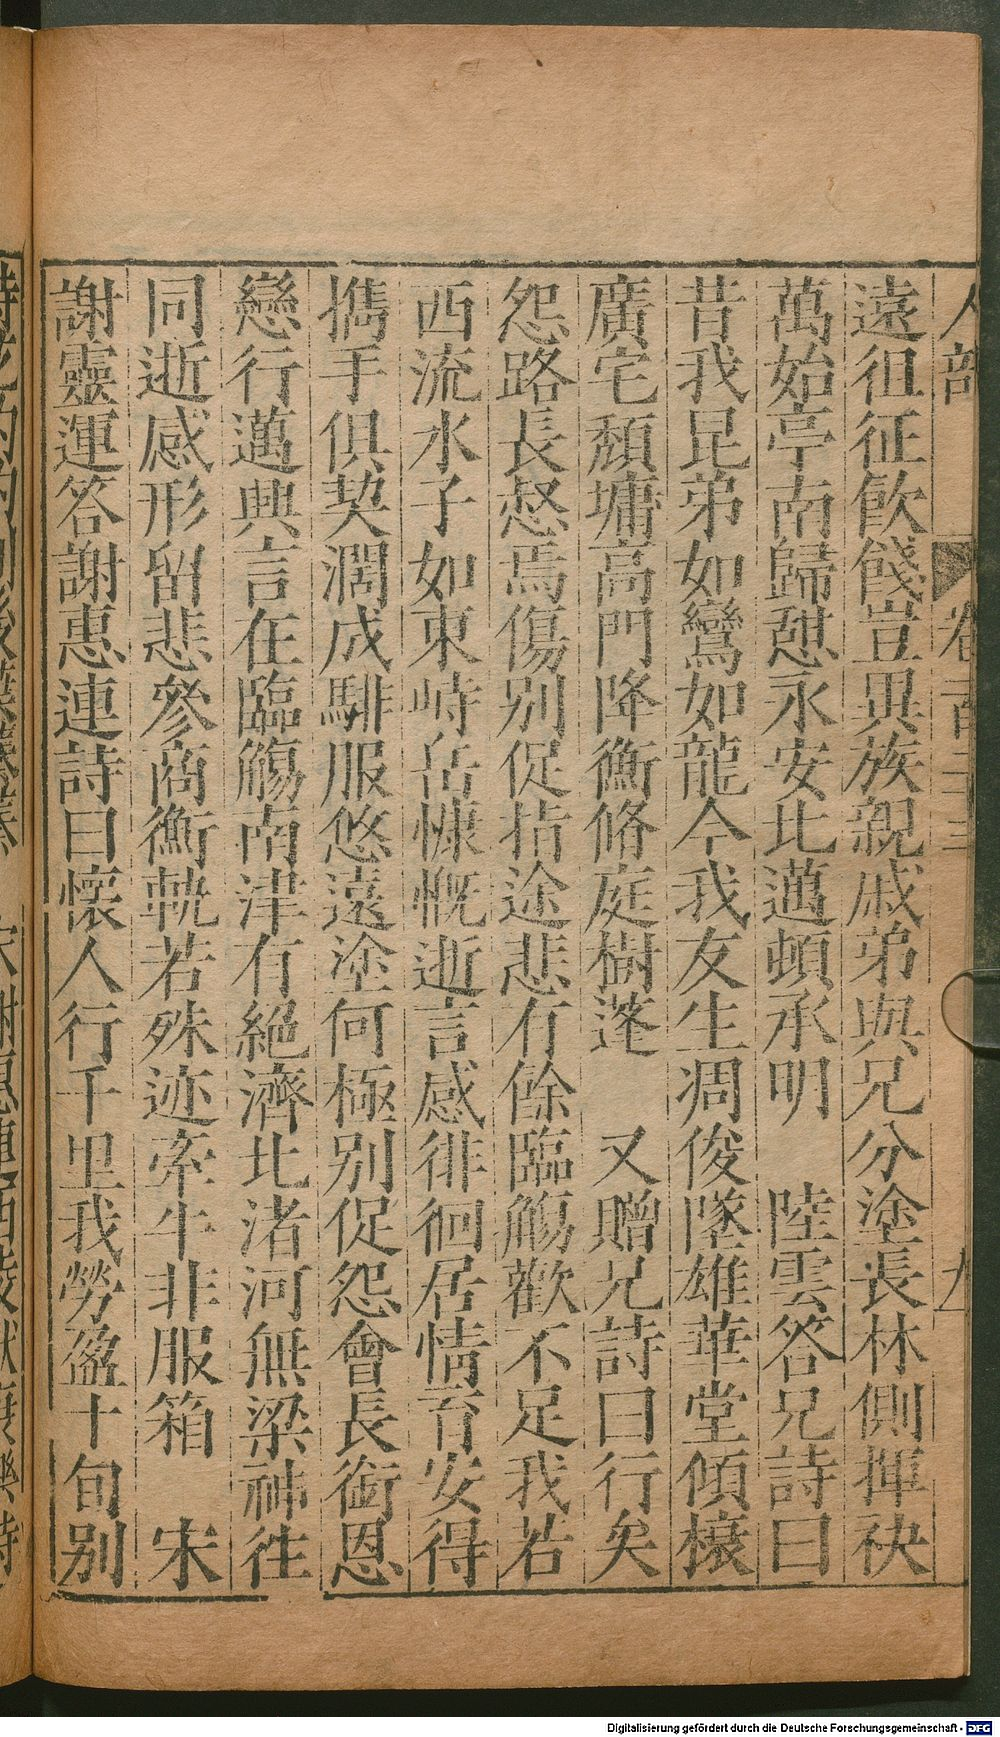 人部 卷一百二十三 九
遠徂征飲餞豈異族親戚弟與兄分塗長林側揮袂
萬始亭南歸憇永安北邁頓承明 陸雲答兄詩曰
昔我昆弟如鸞如龍今我友生凋俊墜雄華堂傾榱
廣宅頹墉高門降衡脩庭樹蓬 又贈兄詩曰行矣
怨路長惄焉傷别促指途悲有餘臨觴歡不足我若
西流水子如東峙岳慷慨逝言感徘徊居情育安得
攜手俱契濶成騑服悠遠塗何極别促怨會長銜恩
戀行邁興言在臨觴南津有絕濟北渚河無梁神往
同逝感形留悲參商衡軌若殊迹牽牛非服箱 宋
謝靈運答謝惠連詩曰懷人行千里我勞盈十旬别
Digitalisierung gefördert durch die Deutsche Forschungsgemeinschaft - DFG